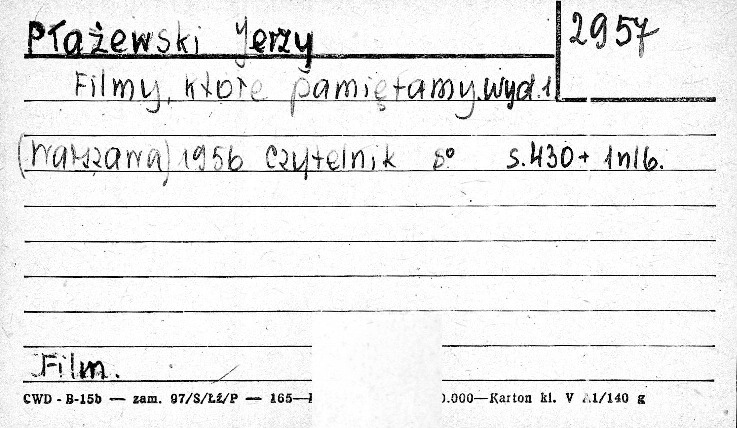 Płażewski Jerzy 2957
Filmy, które pamiętamy. Wyd. 1
(Warszawa) 1956 Czytelnik 8° s. 430 + 1 nlb.
Film.
CWD - B-15b — zam. 97/S/Łź/P — 165— 0.000—Karton kl. V A1/140 g